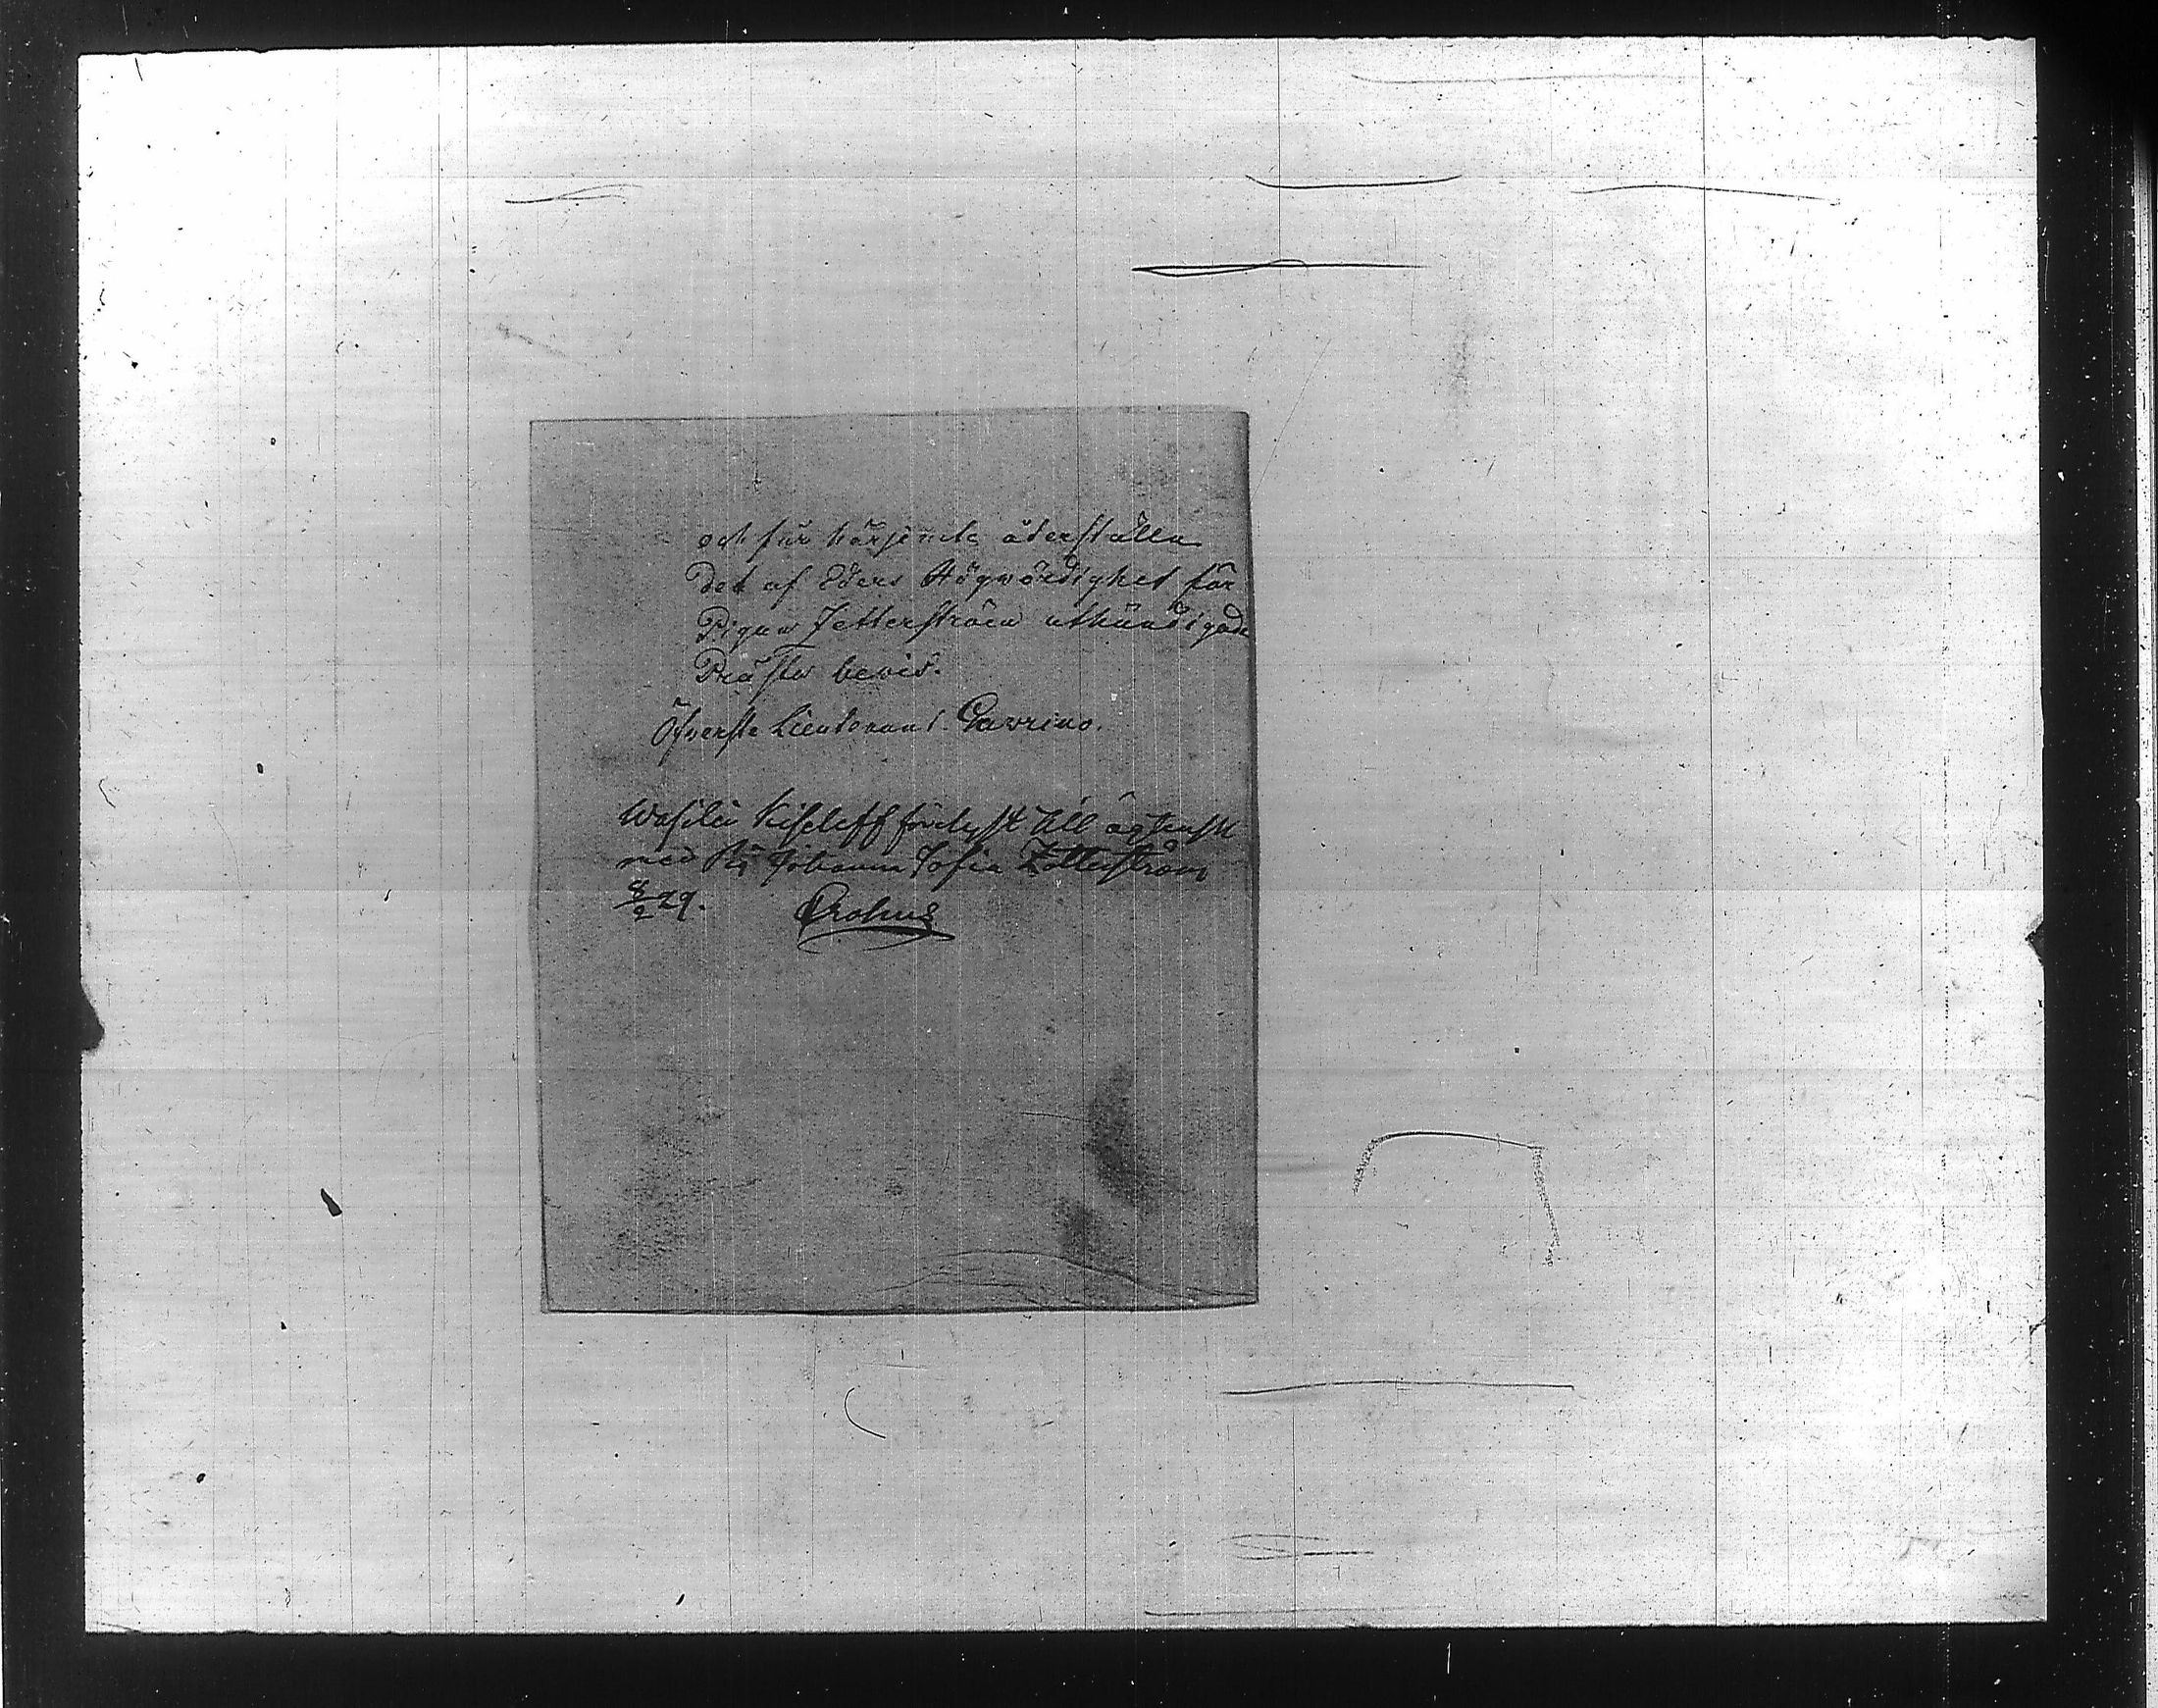 och får härjemte återställa
det af Eders Högvördighet för
Pigan Zetterström uthändigade
Präste bevis.
Öfverste Lieutenant Gavrino.
Wasilei Kiseleff förelyst till ägtensk
med Pig Johanna Sofia Zetterström
8/2 29. Crohns